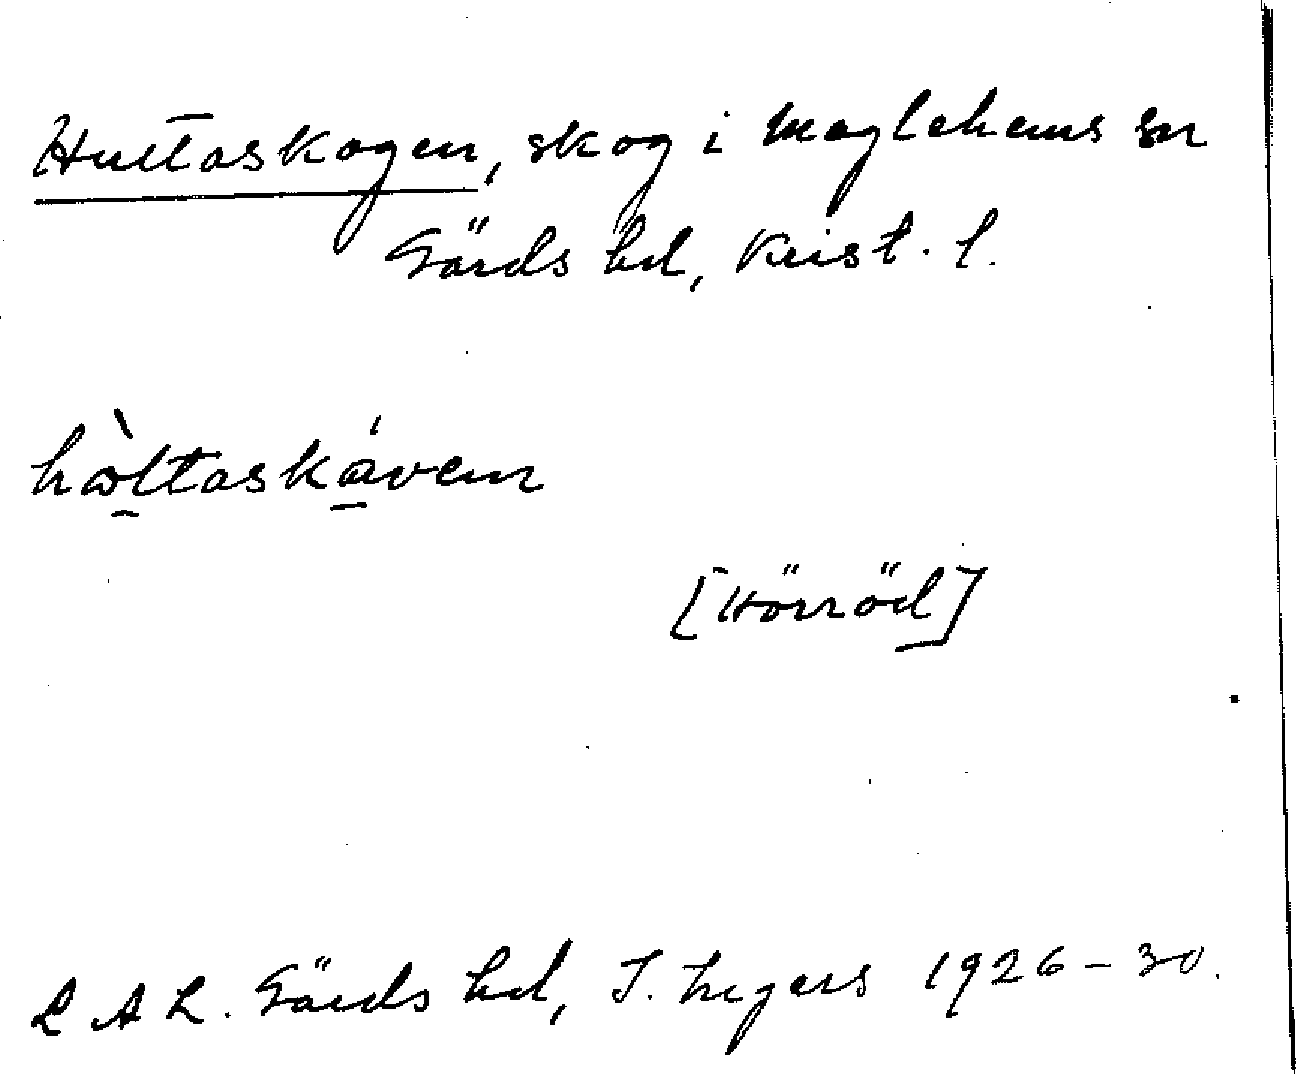 Hultaskogen, skog i Maglehems sn
Gärds hd, Krist. l.
hòltaskáven
[Hörröd]
L A L. Gärds hd, I. Ingers 1926-30.